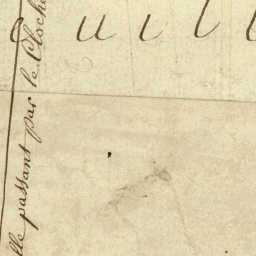 uill
lle passant par le Cloche